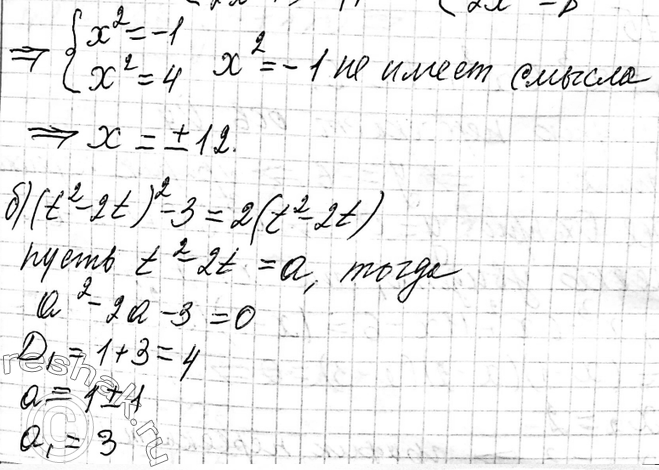 ⇒ { x² = -1
x² = 4 x² = -1 не имеет смысла
⇒ x = ±12.
б) (t² - 2t)² - 3 = 2(t² - 2t)
пусть t² - 2t = a, тогда
a² - 2a - 3 = 0
D₁ = 1 + 3 = 4
a = 1 ± 1
a₁ = 3